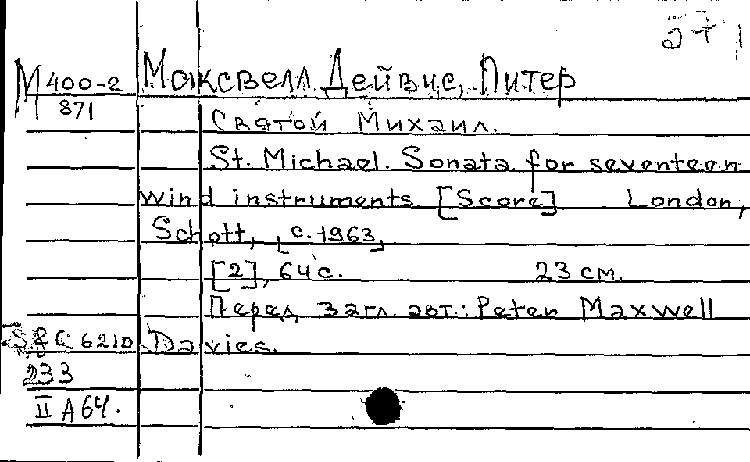 27
М 400-2 Максвелл Дейвис, Питер
871
Святой Михаил.
St. Michael. Sonata for seventeen
wind instruments [Score] London,
Schott, [c. 1963]
[2], 64 с. 23 см.
Перед загл. авт.: Peter Maxwell
Davies.
233
II А 64.